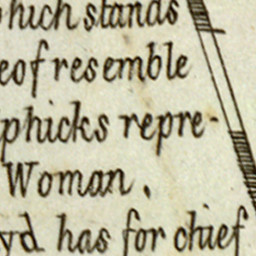 which stands
eof resemble
phicks repre-
Woman.
yd has for chief